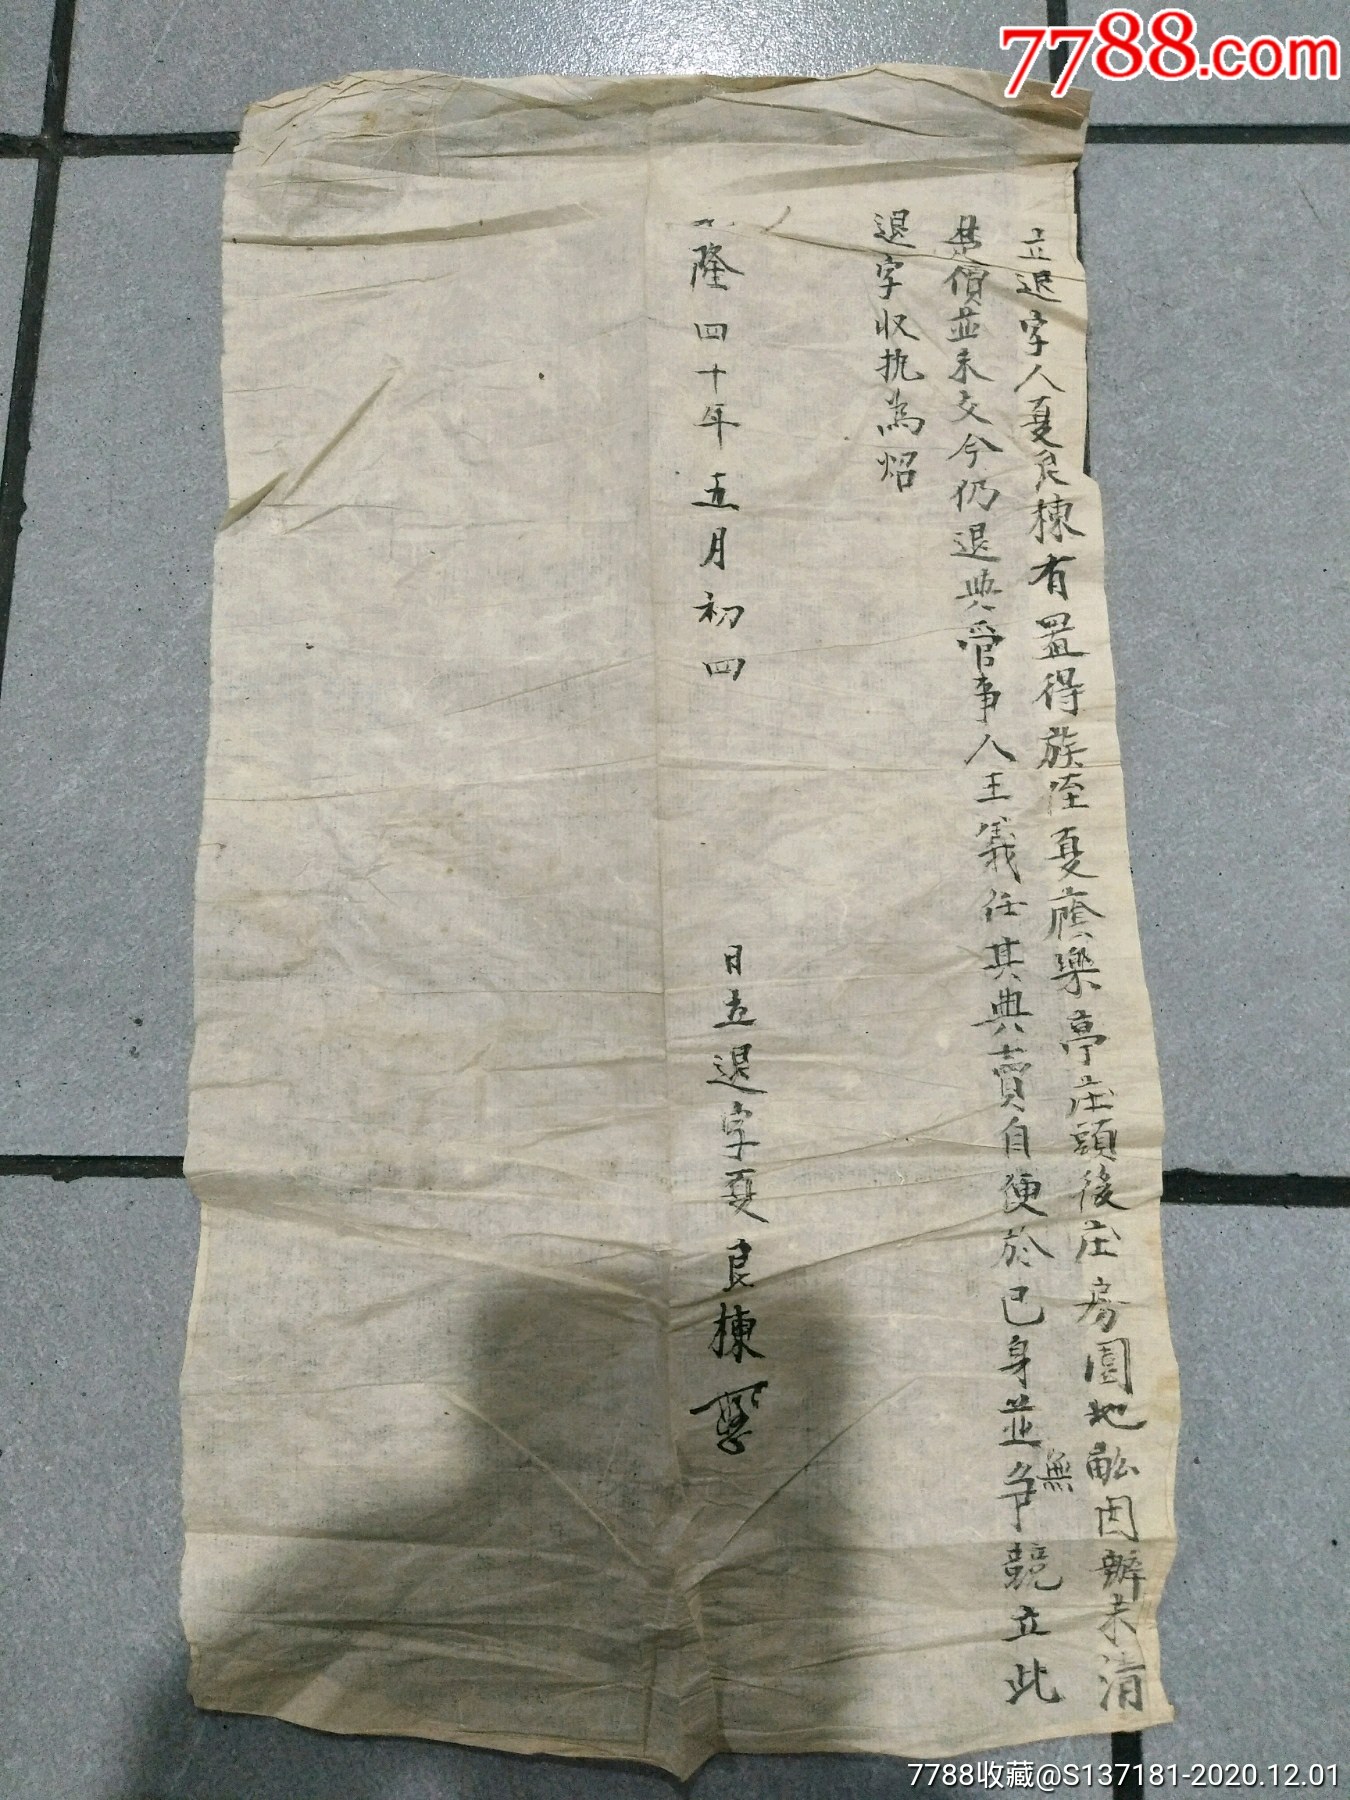 7788.com
立退字人夏良棟有置得族侄夏蔭樂亭庄頭後庄房園地畝因辦未清
楚價並未交今仍退與管事人王義任其典賣自便於己身並無争競立此
退字收执為炤
乾隆四十年五月初四日立退字夏良棟
7788收藏@S137181-2020.12.01